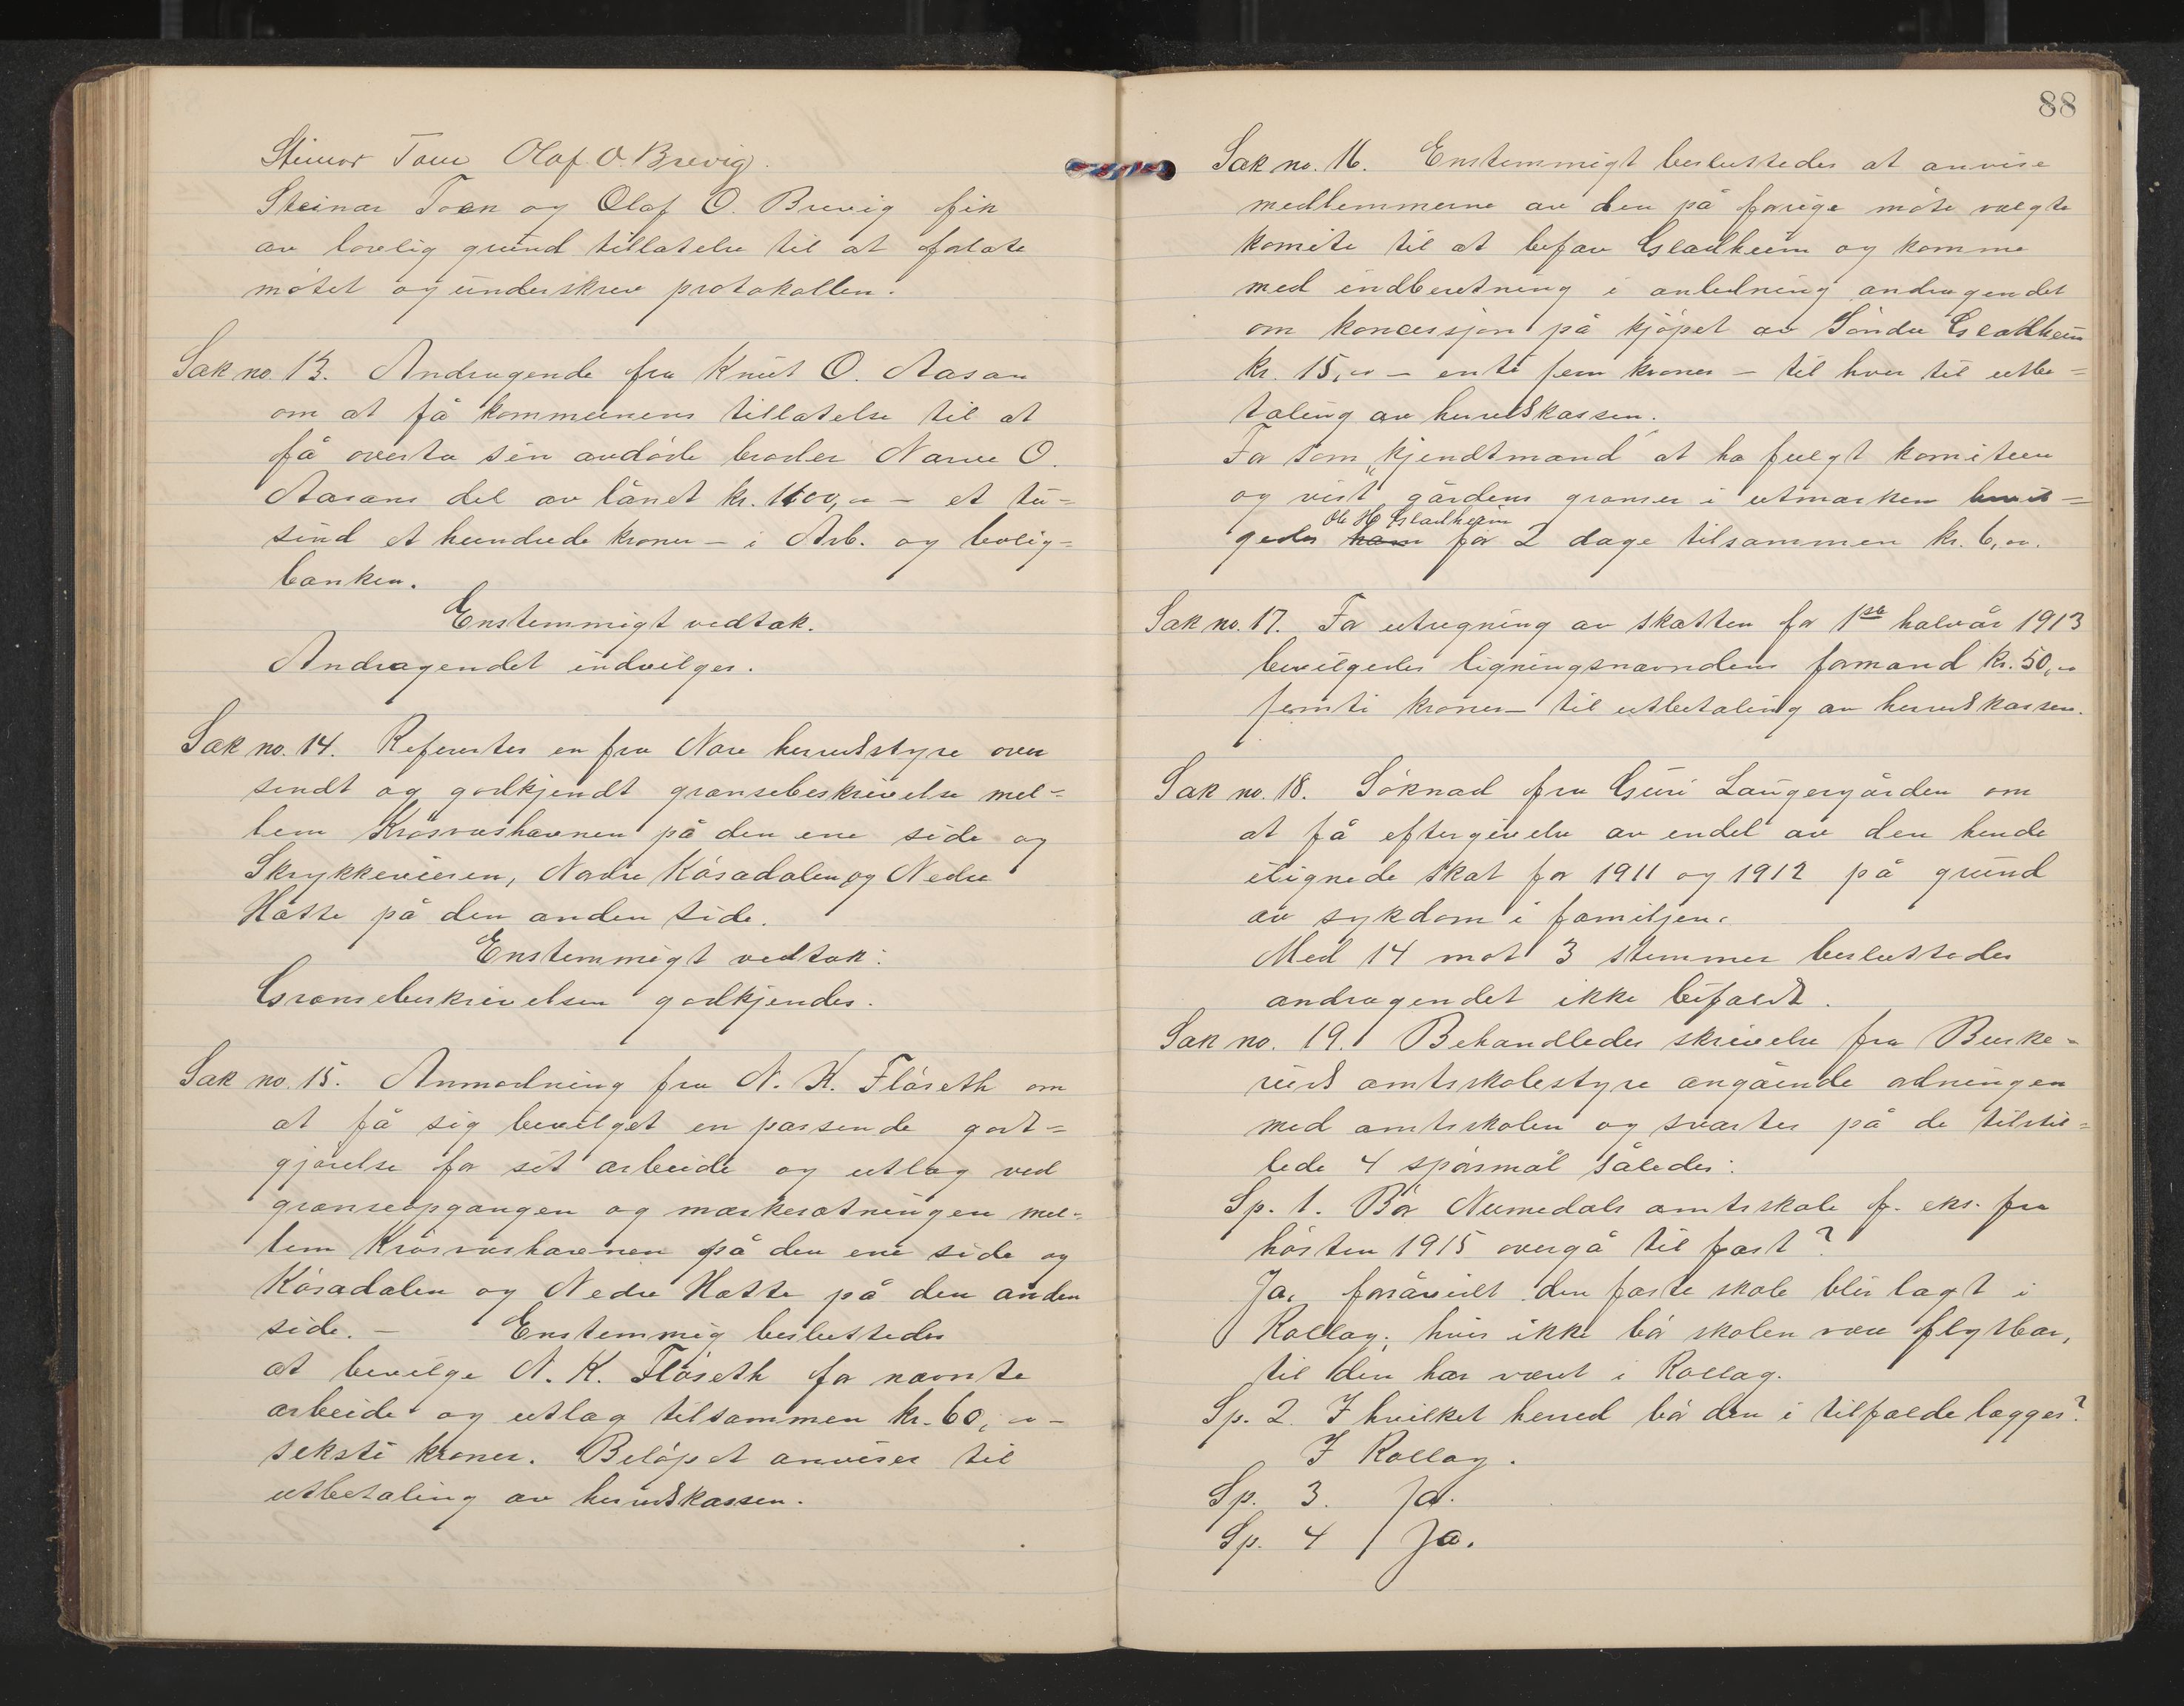 Steinar Toen Olaf O. Brevig.
Steinar Toen og Olaf O. Brevig fik
av lovlig grund tillatelse til at forlate
møtet og underskrev protokollen.
Sak no. 13. Andragende fra Knut O. Aasan
om at få kommunens tillatelse til at
få overta sin avdøde broder Narve O.
Aasans del av lånet kr. 1100,00 – et tu=
sind et hundrede kroner – i Arb. og bolig=
banken.
Enstemmigt vedtak.
Andragendet indvilges.
Sak no. 14. Refertes en fra Nore herredsstyre over
sendt og godkjendt grænsebeskrivelse mel=
lem Krøsvashavnen på den ene side og
Skrykkevieren, Nordre Kåsadalen og Nedre
Hatte på den anden side.
Enstemmigt vedtak:
Grænsebeskrivelsen godkjendes.
Sak no. 15. Anmodning fra N. K. Fløseth om
at få sig bevilget en passende godt=
gjørelse for sit arbeide og utlæg ved
grænseopgangen og merkesætningen mel=
lem Krøsvashavnen på den ene side og
Kåsadalen og Nedre Hatte på den anden
side. – Enstemmig besluttedes
at bevilge N. K. Fløseth for nævnte
arbeide og utlæg tilsammen kr. 60,00 –
seksti kroner. Beløpet anvises til
utbetaling av herredskassen.
88
Sak no. 16. Enstemmigt besluttedes at anvise
medlemmerne av den på forrige møte valgte
komite til at befare Gladheim og komme
med indberetning i anledning andragendet
om koncessjon på kjøpet av Søndre Gladheim
kr. 15,00 – enti fem kroner – til hver til utbe=
taling av herredskassen.
For som „kjendtmand" at ha fulgt komiteen
og vist gårdens grænser i utmarken bevil=
Ole H. Gladheim
gedes ham for 2 dage tilsammen kr. 6,00.
Sak no. 17. For utregning av skatten for 1ste halvår 1913
bevilgedes ligningsnævndens formand kr. 50,00
femti kroner – til utbetaling av herredskassen.
Sak no. 18. Søknad fra Guri Laugergården om
at få eftergivelse av endel av den hende
ilignede skat for 1911 og 1912 på grund
av sykdom i familjen.
Med 14 mot 3 stemmer besluttedes
andragendet ikke bifaldt.
Sak no. 19. Behandledes skrivelse fra Buske=
ruds amtsskolestyre angående ordningen
med amtsskolen og svartes på de tilstil=
lede 4 spørsmål således:
Sp. 1. Bør Numedals amtsskole f. eks. fra
høsten 1915 overgå til fast?
Ja, foråvidt den faste skole blir lagt i
Rollag; hvis ikke bør skolen være flytbar,
til den har været i Rollag.
Sp. 2. I hvilket herred bør den i tilfælde lægges?
I Rollag.
Sp. 3. Ja.
Sp. 4 Ja.